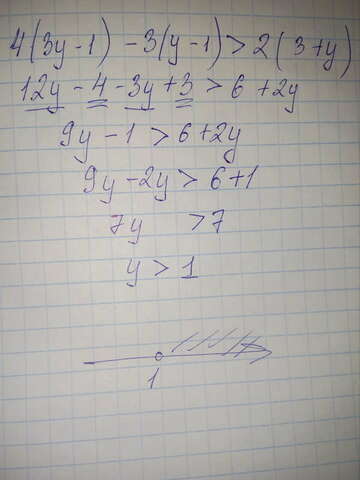 4(3y-1) -3(y-1)>2(3+y)
12y-4-3y+3>6+2y
9y-1>6+2y
9y-2y>6+1
7y >7
y>1
1